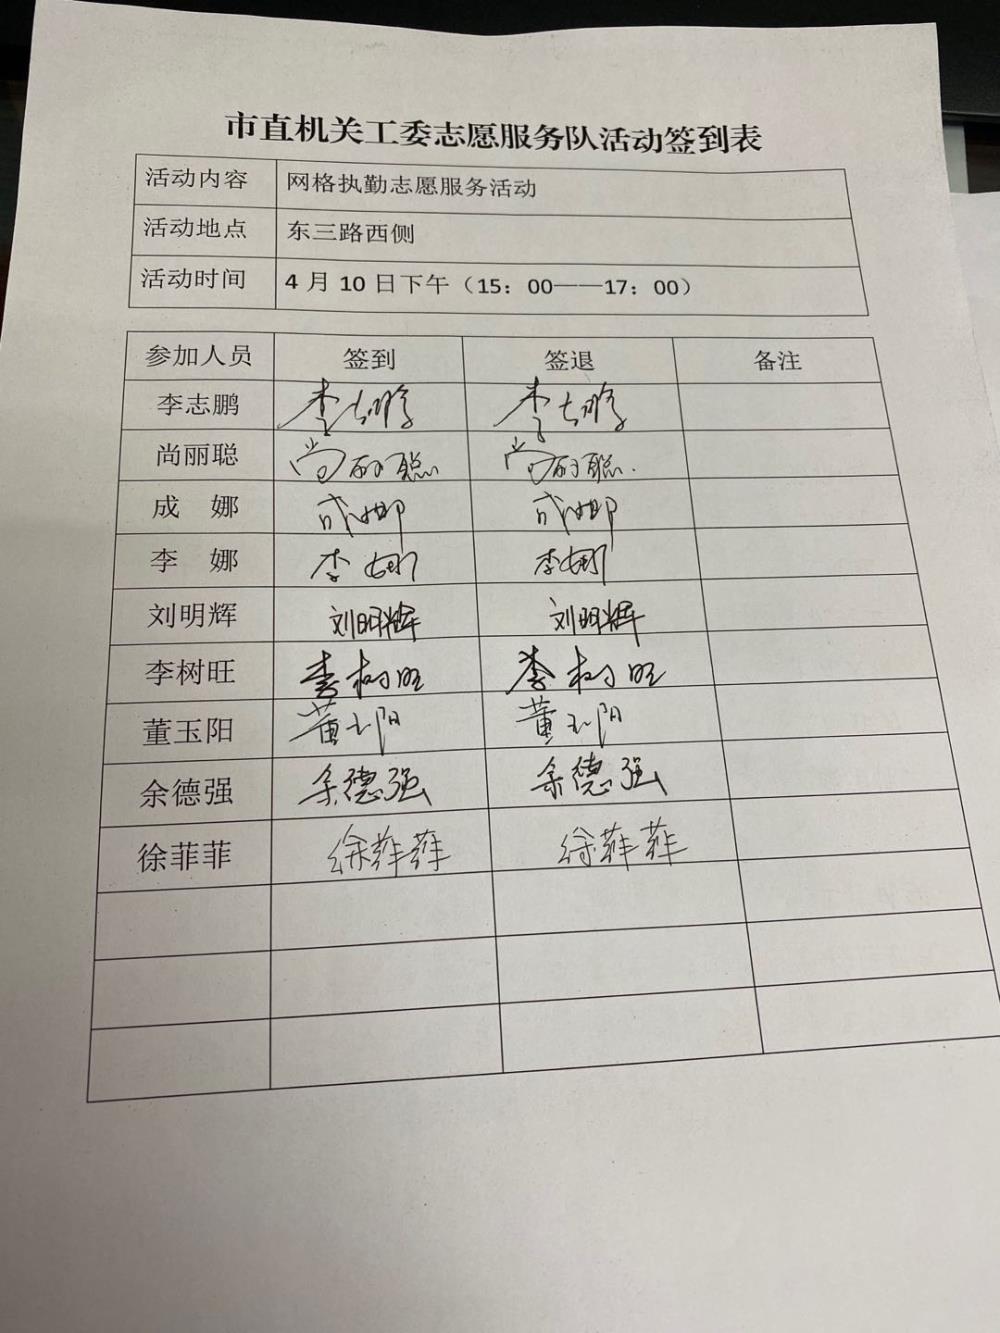 市直机关工委志愿服务队活动签到表
活动内容 网格执勤志愿服务活动
活动地点 东三路西侧
活动时间 4月10日下午（15：00——17：00）
参加人员 签到 签退 备注
李志鹏 李志鹏 李志鹏
尚丽聪 尚丽聪 尚丽聪
成 娜 成娜 成娜
李 娜 李娜 李娜
刘明辉 刘明辉 刘明辉
李树旺 李树旺 李树旺
董玉阳 董玉阳 董玉阳
余德强 余德强 余德强
徐菲菲 徐菲菲 徐菲菲